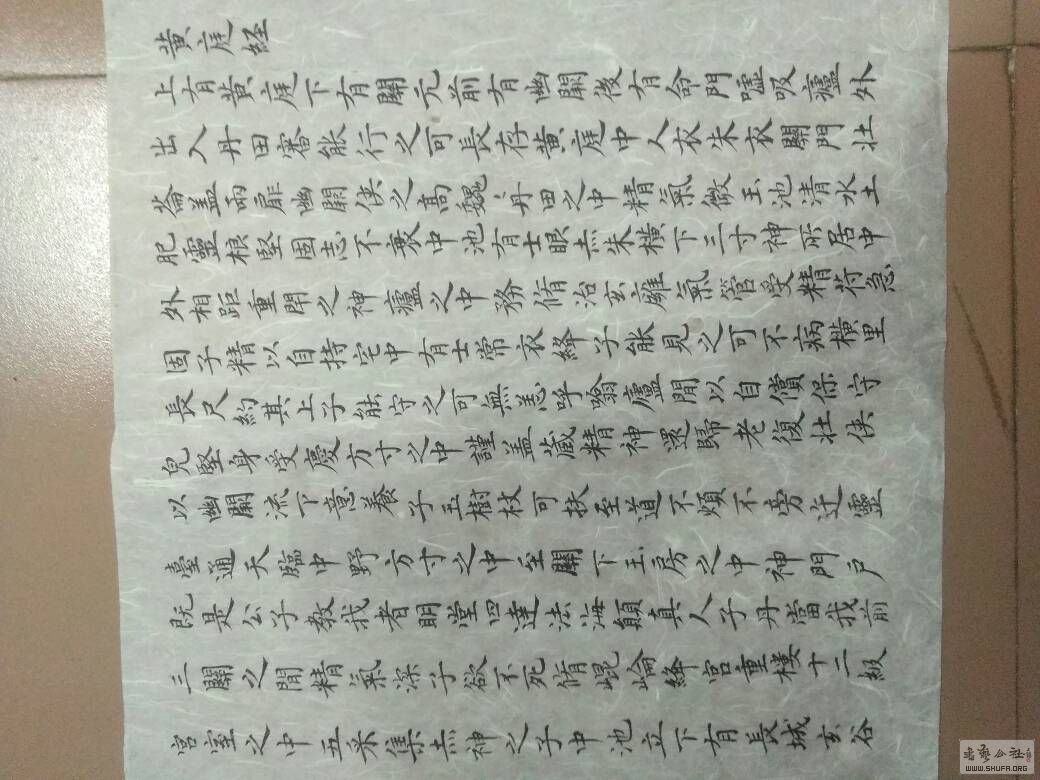 黄庭経
上有黄庭下有關元前有幽闕後有命門噓吸廬外
出入丹田審能行之可長存黄庭中人衣朱衣關門壯
蘥盖兩扉幽闕侠之高巍巍丹田之中精氣微玉池清水上
肥靈根堅固志不衰中池有士眼赤朱横下三寸神所居中
外相距重閇之神廬之中務脩治玄癰氣管受精符急
固子精以自持宅中有士常衣絳子能見之可不病横里
長尺約其上子能守之可無恙呼噏廬間以自償保守
皃堅身受慶方寸之中謹盖藏精神還歸老復壯侠
以幽闕流下竟養子玉樹杖可扶至道不煩不旁迕靈
臺通天臨中野方寸之中至關下玉房之中神門户
既是公子教我者明堂四達法海負真人子丹當我前
三關之間精氣深子欲不死脩崐崘絳宮重樓十二級
宮室之中五采集赤神之子中池立下有長城玄谷
書藝公社
WWW.SHUFA.ORG